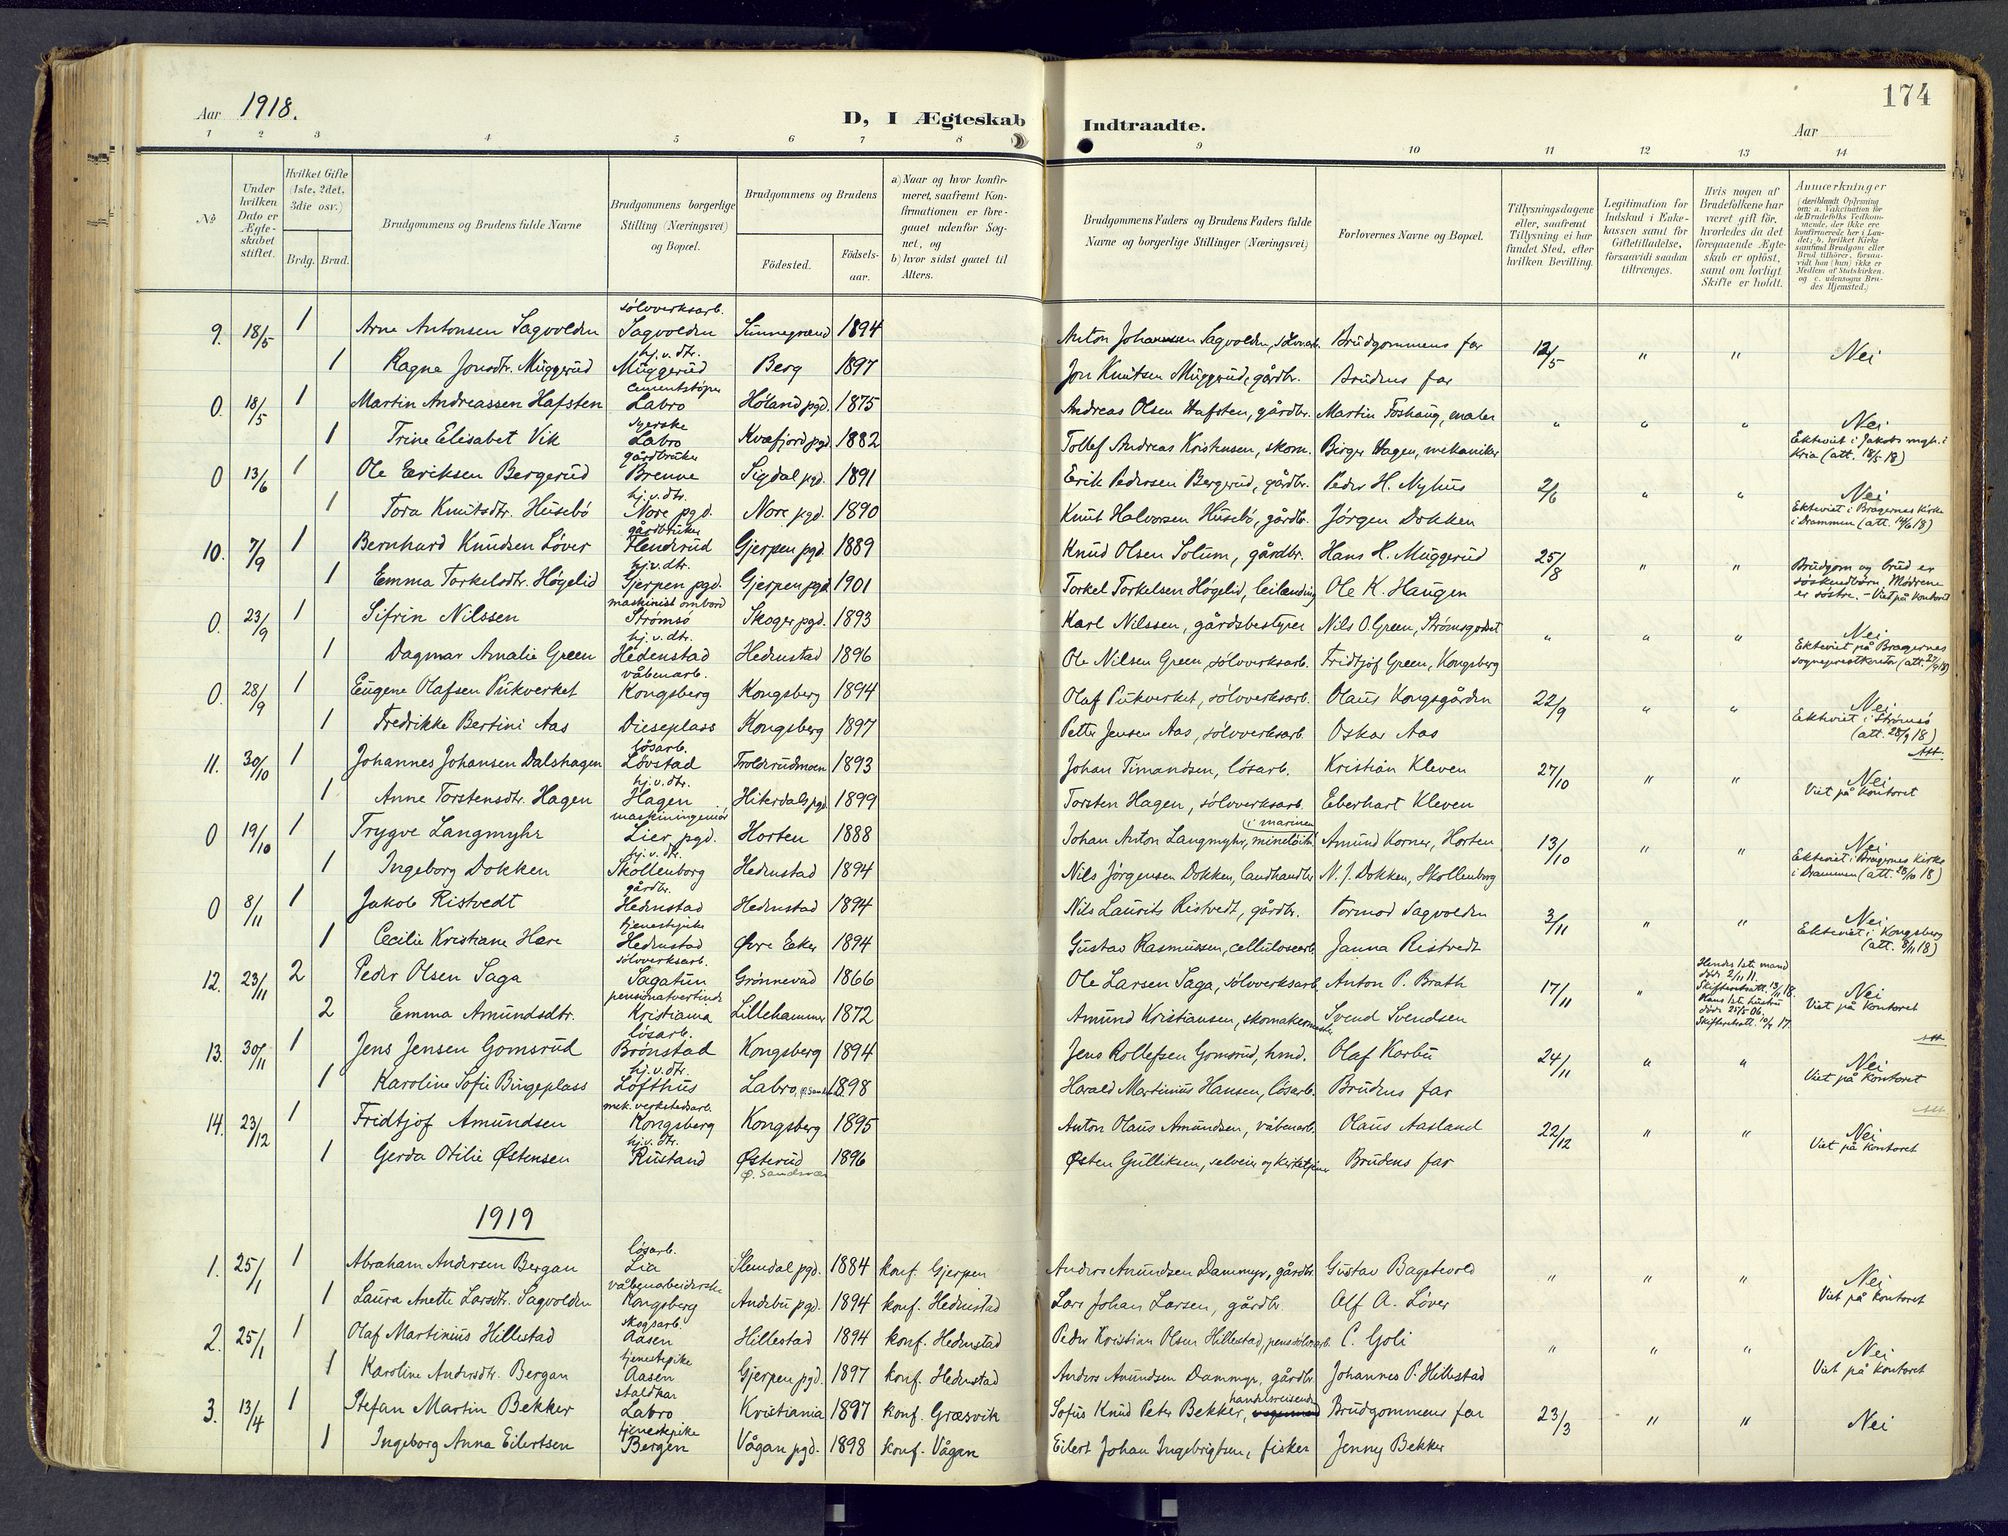 Aar 1918.
D, I Ægteskab Indtraadte.
174
Aar
1 2 3 4 5 6 7 8 9 10 11 12 13 14
No
Under hvilken Dato er Ægteskabet stiftet.
Hvilket Gifte (1ste, 2det, 3die osv.)
Brdg. Brud.
Brudgommens og Brudens fulde Navne
Brudgommens borgerlige Stilling (Næringsvei) og Bopæl.
Brudgommens og Brudens
Fødested.
Fødselsaar.
a) Naar og hvor konfirmeret, saafremt Konfirmationen er foregaaet udenfor Sognet, og
b) hvor sidst gaaet til Alters.
Brudgommens Faders og Brudens Faders fulde Navne og borgerlige Stillinger (Næringsvei)
Forlovernes Navne og Bopæl.
Tillysningsdagene eller, saafremt Tillysning ei har fundet Sted, efter hvilken Bevilling.
Legitimation for Indskud i Enkekassen samt for Giftetilladelse, forsaavidt saadan tiltrænges.
Hvis nogen af Brudefolkene har været gift før, hvorledes da det foregaaende Ægteskab er opløst, samt om lovligt Skifte er holdt.
Anmærkninger (deriblandt Oplysning om: a. Vakcination for de Brudefolks Vedkommende, der ikke ere konfirmerede her i Landet; b. hvilket Kirkesamfund Brudgom eller Brud tilhører, forsaavidt han (hun) ikke er Medlem af Statskirken, og c. udensogns Brudes Hjemsted.)
9. 18/5 1 Arne Antonsen Sagvolden sølvverksarb. Sagvolden Sunnegrænd 1894 Anton Johannssen Sagvolden, sølvark. Brudgommens far 12/5 " " Nei
1 Ragna Jonsdtr. Muggerud hj. v. dtr. Muggerud Berg 1897 Jon Knutsen Muggrud, gårdbr. Brudens far
0. 18/5 1 Martin Andreassen Hafsten cementstøper Labro Høland pgd. 1875 Andreas Olsen Hafsten, gårdbr. Martin Foshaug, maler " " " Nei
1 Trine Elisabet Vik syerske Labro Kvæfjord pgd. 1882 Tollef Andreas Kristensen, skom. Birger Hagen, mekaniker Ekteviet i Jakobs mgh. i Kria (att. 18/5 18)
0 13/6 1 Ole Eriksen Bergerud gårdbruker Brenne Sigdal pgd. 1891 Erik Pedersen Bergerud, gårdbr. Peder H. Nyhus 2/6 " " Nei
1 Tora Knutsdtr. Husebö hj. v. dtr. Nore pgd. Nore pgd. 1890 Knut Halvorsen Husebö, gårdbr. Jörgen Dokken Ekteviet i Bragernes Kirke i Drammen (att. 14/6 18)
10. 7/9 1 Bernhard Knudsen Löver gårdbruker Henserud Gjerpen pgd. 1889 Knud Olsen Solum, gårdbr. Hans H. Muggerud 25/8 " " Brudgom og brud er söskendbörn. Mödrene er söstre. - Viet på kontoret
1 Emma Torkelsdtr. Högelid hj. v. dtr. Gjerpen pgd. Gjerpen pgd. 1901 Torkel Torkelsen Högelid, leilending Ole K. Haugen
0. 23/9 1 Sifrin Nilssen maskinist ombord Strømsö Skoger pgd. 1893 Karl Nilssen, gårdsbestyrer Nils O. Green, Strømsgodset " " " Nei
1 Dagmar Amalie Green hj. v. dtr. Hedenstad Hedenstad 1896 Ole Nilsen Green, sølvverksarb. Fridtjof Green, Kongsberg Ekteviet på Bragernes sogneprestkontor (att. 27/9 18)
0. 28/9 1 Eugene Olafsen Pukverket våbenarb. Kongsberg Kongsberg 1894 Olaf Pukverket, sølvverksarb. Olaus Kongsgården 22/9 " " Nei
1 Fredrikke Bertini Aas Dieseplass Kongsberg 1897 Petter Jensen Aas, sølvverksarb. Oskar Aas Ekteviet i Strømsö (att. 28/9 18)
11. 30/10 1 Johannes Johansen Dalshagen lösarb. Lövstad Troldrudmoen 1893 Johan Timandsen, lösarb. Kristian Kleven 27/10 " " Nei
1 Anne Torstensdtr. Hagen hj. v. dtr. Hagen Hiterdals pgd. 1899 Torsten Hagen, sølvverksarb. Eberhart Kleven Viet på kontoret
0 19/10 1 Trygve Langmyhr maskiningeniör Lier pgd. Horten 1888 Johan Anton Langmyhr, mineløitn. i marinen Amund Korner, Horten 13/10 " " Nei
1 Ingeborg Dokken hj. v. dtr. Skollenborg Hedenstad 1894 Nils Jörgensen Dokken, landhandler N. J. Dokken, Skollenborg Ekteviet i Bragernes Kirke i Drammen (att. 18)
0 8/11 1 Jakob Ristvedt gårdbr. Hedenstad Hedenstad 1894 Nils Laurits Ristvedt, gårdbr. Tormod Sagvolden 3/11 " " Nei
1 Cecilie Kristiane Hære tjenestepike Hedenstad Øvre Eiker 1894 Gustav Rasmussen, cellulosearb. Janna Ristvedt Ekteviet i Kongsberg (att. 8/11 18)
12. 23/11 2 Peder Olsen Saga sølvverksarb. Sagatun Grønnevad 1866 Ole Larsen Saga, sølvverksarb. Anton P. Brath 17/11 " Hendes 1ste mand død 2/11 11. Skifteretsatt. 13/11 18. Hans 1ste hustru død 25/5 06. Skifteretsatt. 10/4 17. Nei
2 Emma Amundsdtr. pensionatvertinde Kristiania Lillehammer 1872 Amund Kristiansen, skomakermester Svend Svendsen Viet på kontoret
13. 30/11 1 Jens Jensen Gomsrud lösarb. Brönstad Kongsberg 1894 Jens Rollefsen Gomsrud, hmd. Olaf Korbu 24/11 " " Nei
1 Karoline Sofie Bingeplass hj. v. dtr. Lofthus Labro 1898 Harald Martinius Hansen, lösarb. Brudens far Viet på kontoret
14. 23/12 1 Fridtjof Amundsen mek. verkstedsarb. Kongsberg Kongsberg 1895 Anton Olaus Amundsen, våbenarb. Olaus Aasland 22/12 " " Nei
1 Gerda Otilie Østensen hj. v. dtr. Rustand Østerud Ø. Sandsvær 1896 Østen Gulliksen, selveier og kirketjener Brudens far Viet på kontoret
1919
1. 25/1 1 Abraham Andersen Bergan lösarb. Lia Slemdal pgd. 1884 konf. Gjerpen Anders Amundsen Dammyr, gårdbr. Gustav Bagstevold " " " Nei
1 Laura Anette Larsdtr. Sagvolden våbenarbeiderske Kongsberg Andebu pgd. 1894 konf. Hedenstad Lars Johan Larsen, gårdbr. Alf A. Löver Viet på kontoret
2. 25/1 1 Olaf Martinius Hillestad skogsarb. Aasen Hillestad 1894 konf. Hedenstad Peder Kristian Olsen Hillestad, pens. sølvv.arb. C. Goli " " " Nei
1 Karoline Andersdtr. Bergan tjenestepike Aasen Gjerpen pgd. 1897 konf. Hedenstad Anders Amundsen Dammyr, gårdbr. Johannes P. Hillestad Viet på kontoret
3. 13/4 1 Stefan Martin Bekker staldkar Labro Kristiania 1897 konf. Græsvik Sofus Knud Peter Bekker, handelsreisende Brudgommens far 23/3 " " Nei
1 Ingeborg Anna Eilertsen tjenestepike Bergen Vågan pgd. 1898 konf. Vågan Eilert Johan Ingebrigtsen, fisker Jenny Bekker